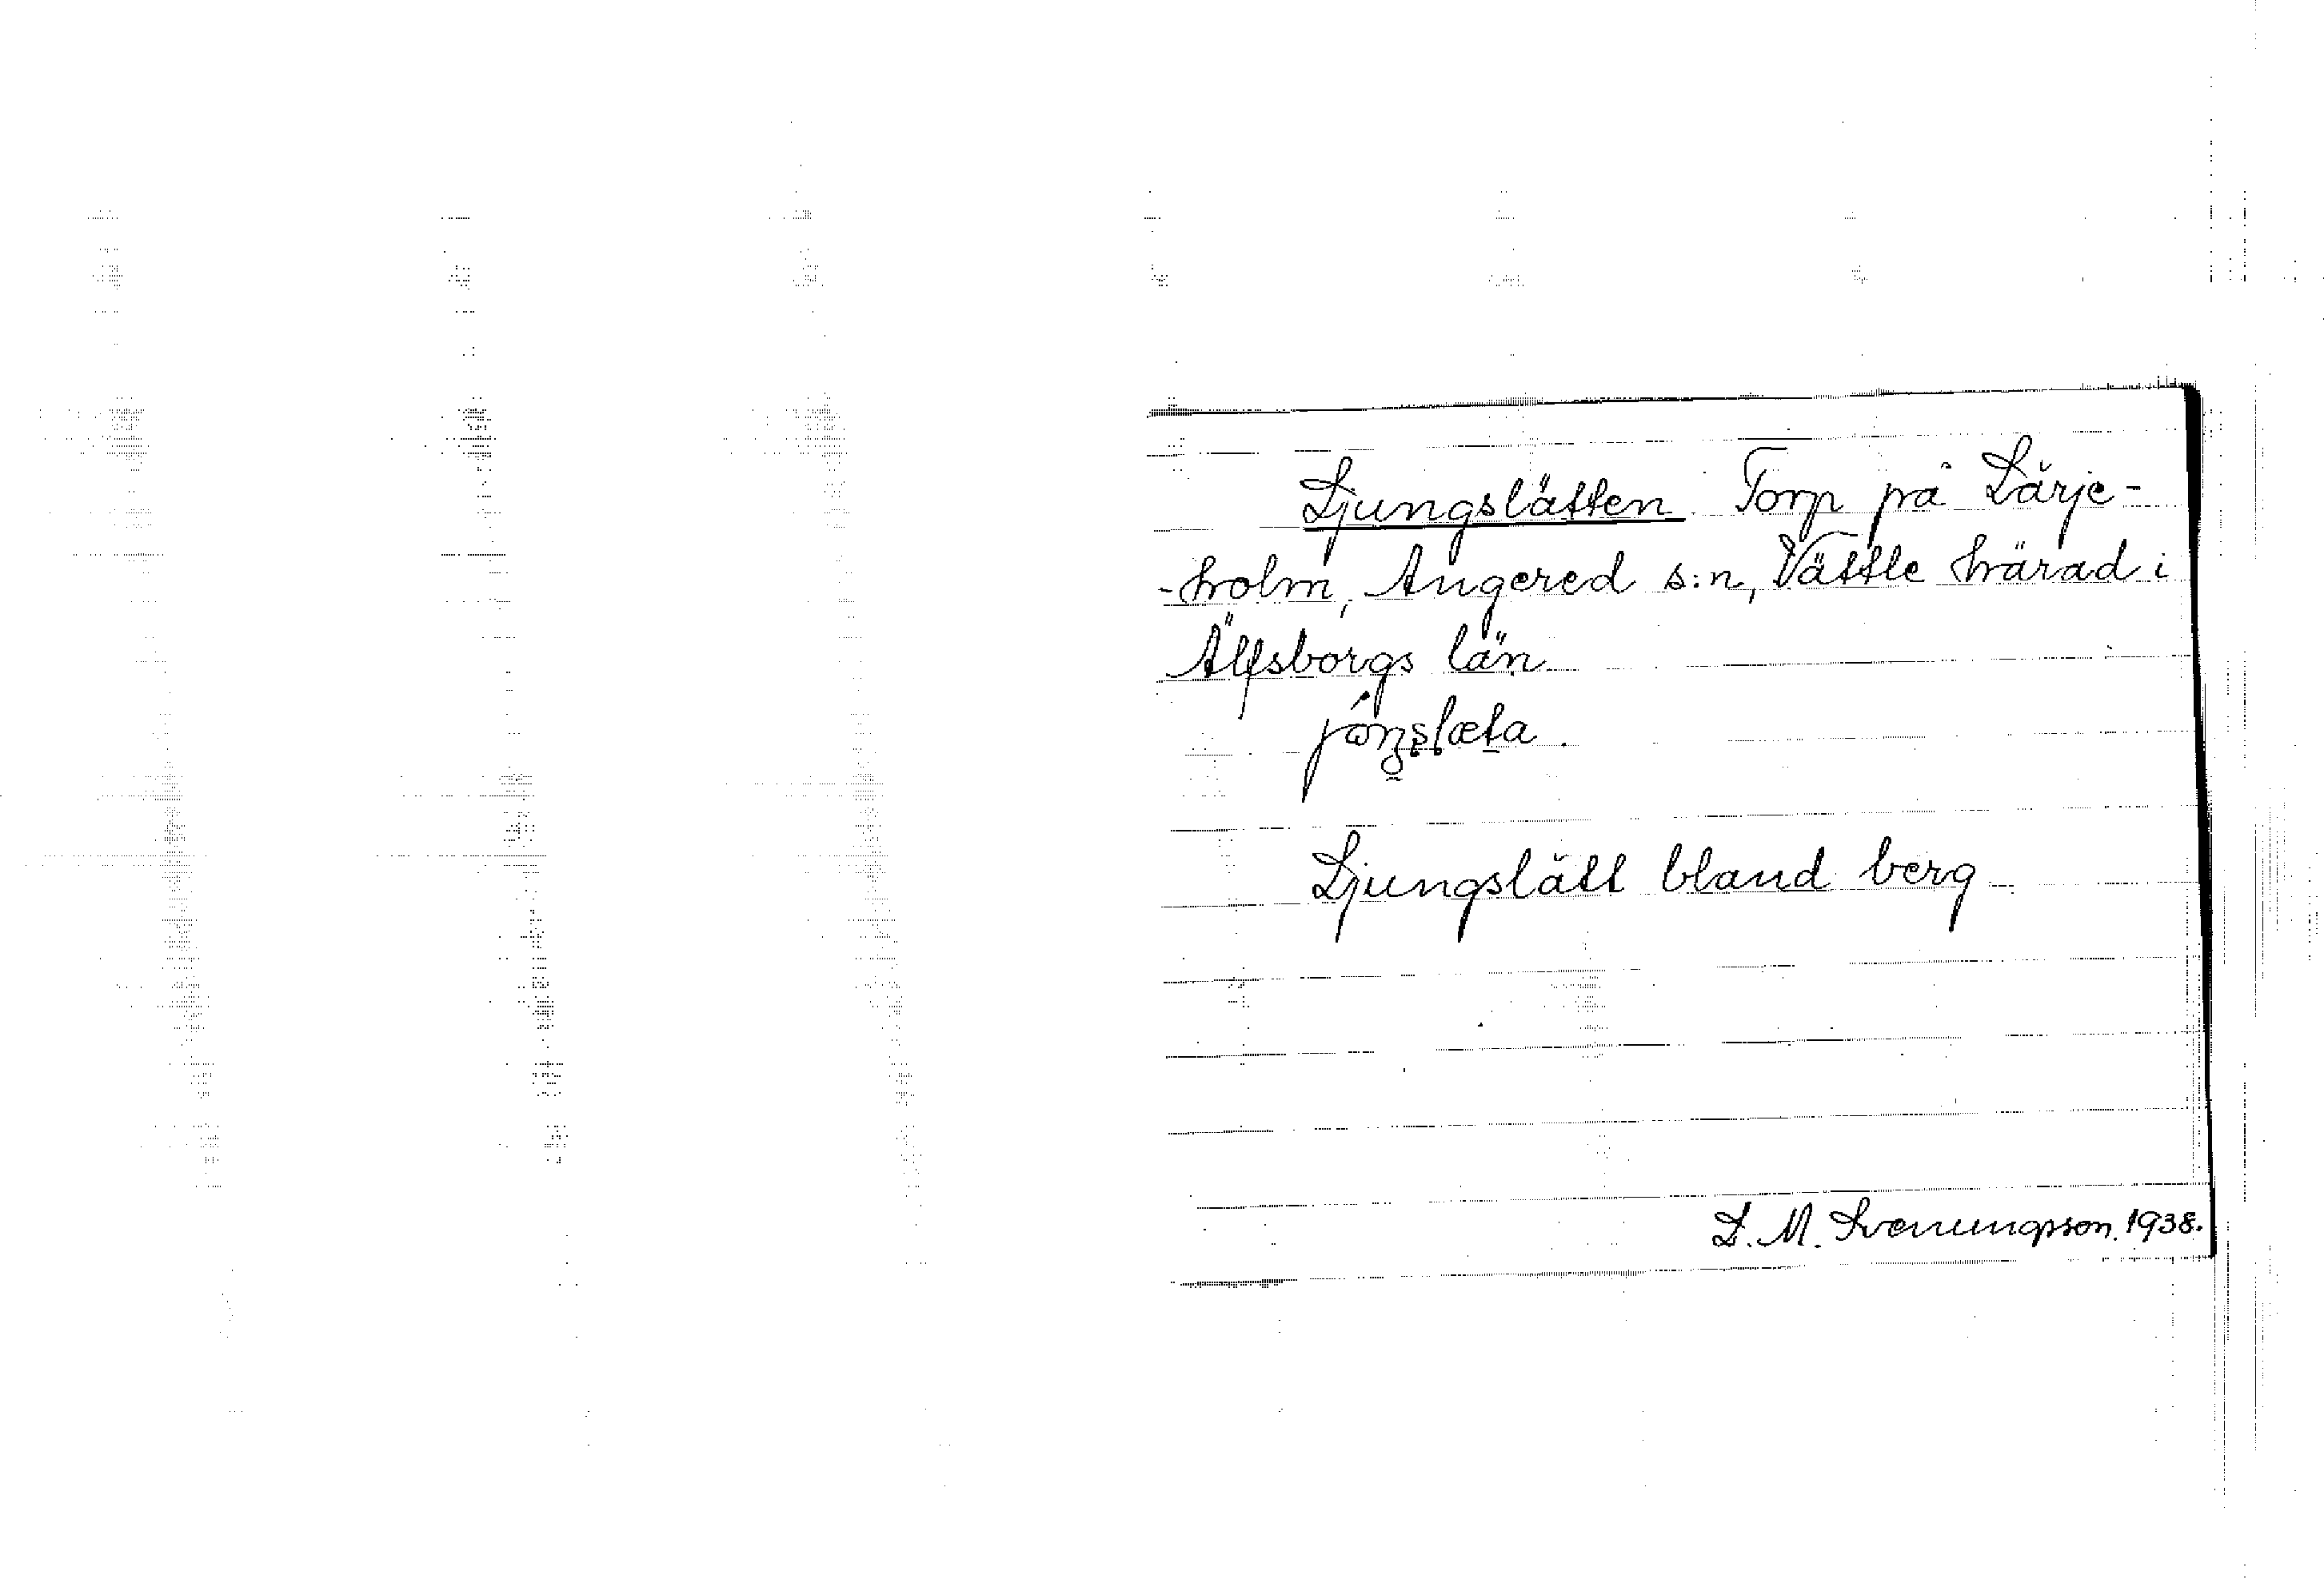 Ljungslätten. Torp på Lärje-
-holm, Angered s:n, Vättle härad i
Älfsborgs län
Ljungslätt bland berg
L. M. Svenungsson. 1938.